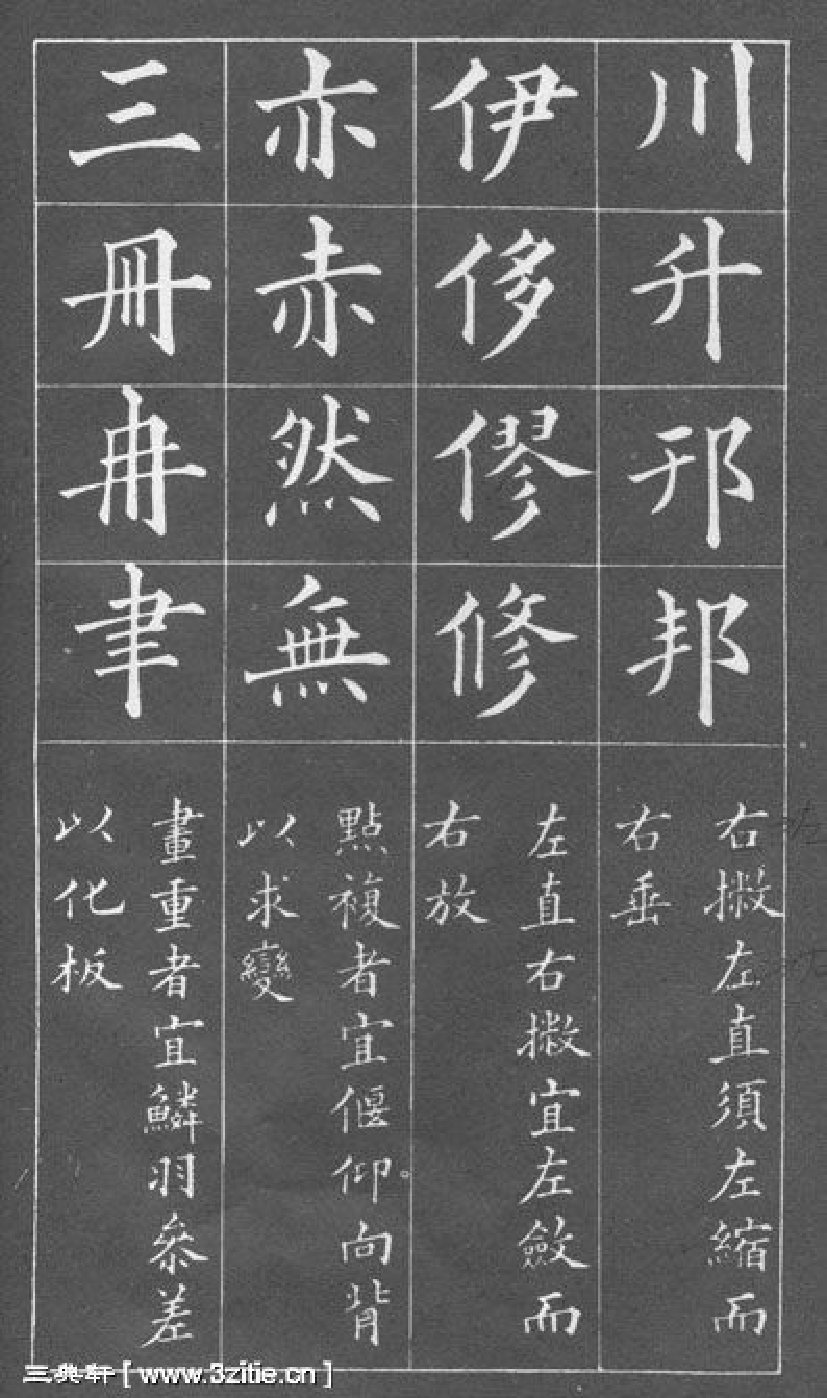 川升邗邦
右撇左直須左縮而
右垂
伊侈僇修
左直右撇宜左斂而
右放
亦赤然無
點複者宜偃仰向背
以求變
三冊冉聿
畫重者宜鱗羽參差
以化板
三典轩 [ www.3zitie.cn ]